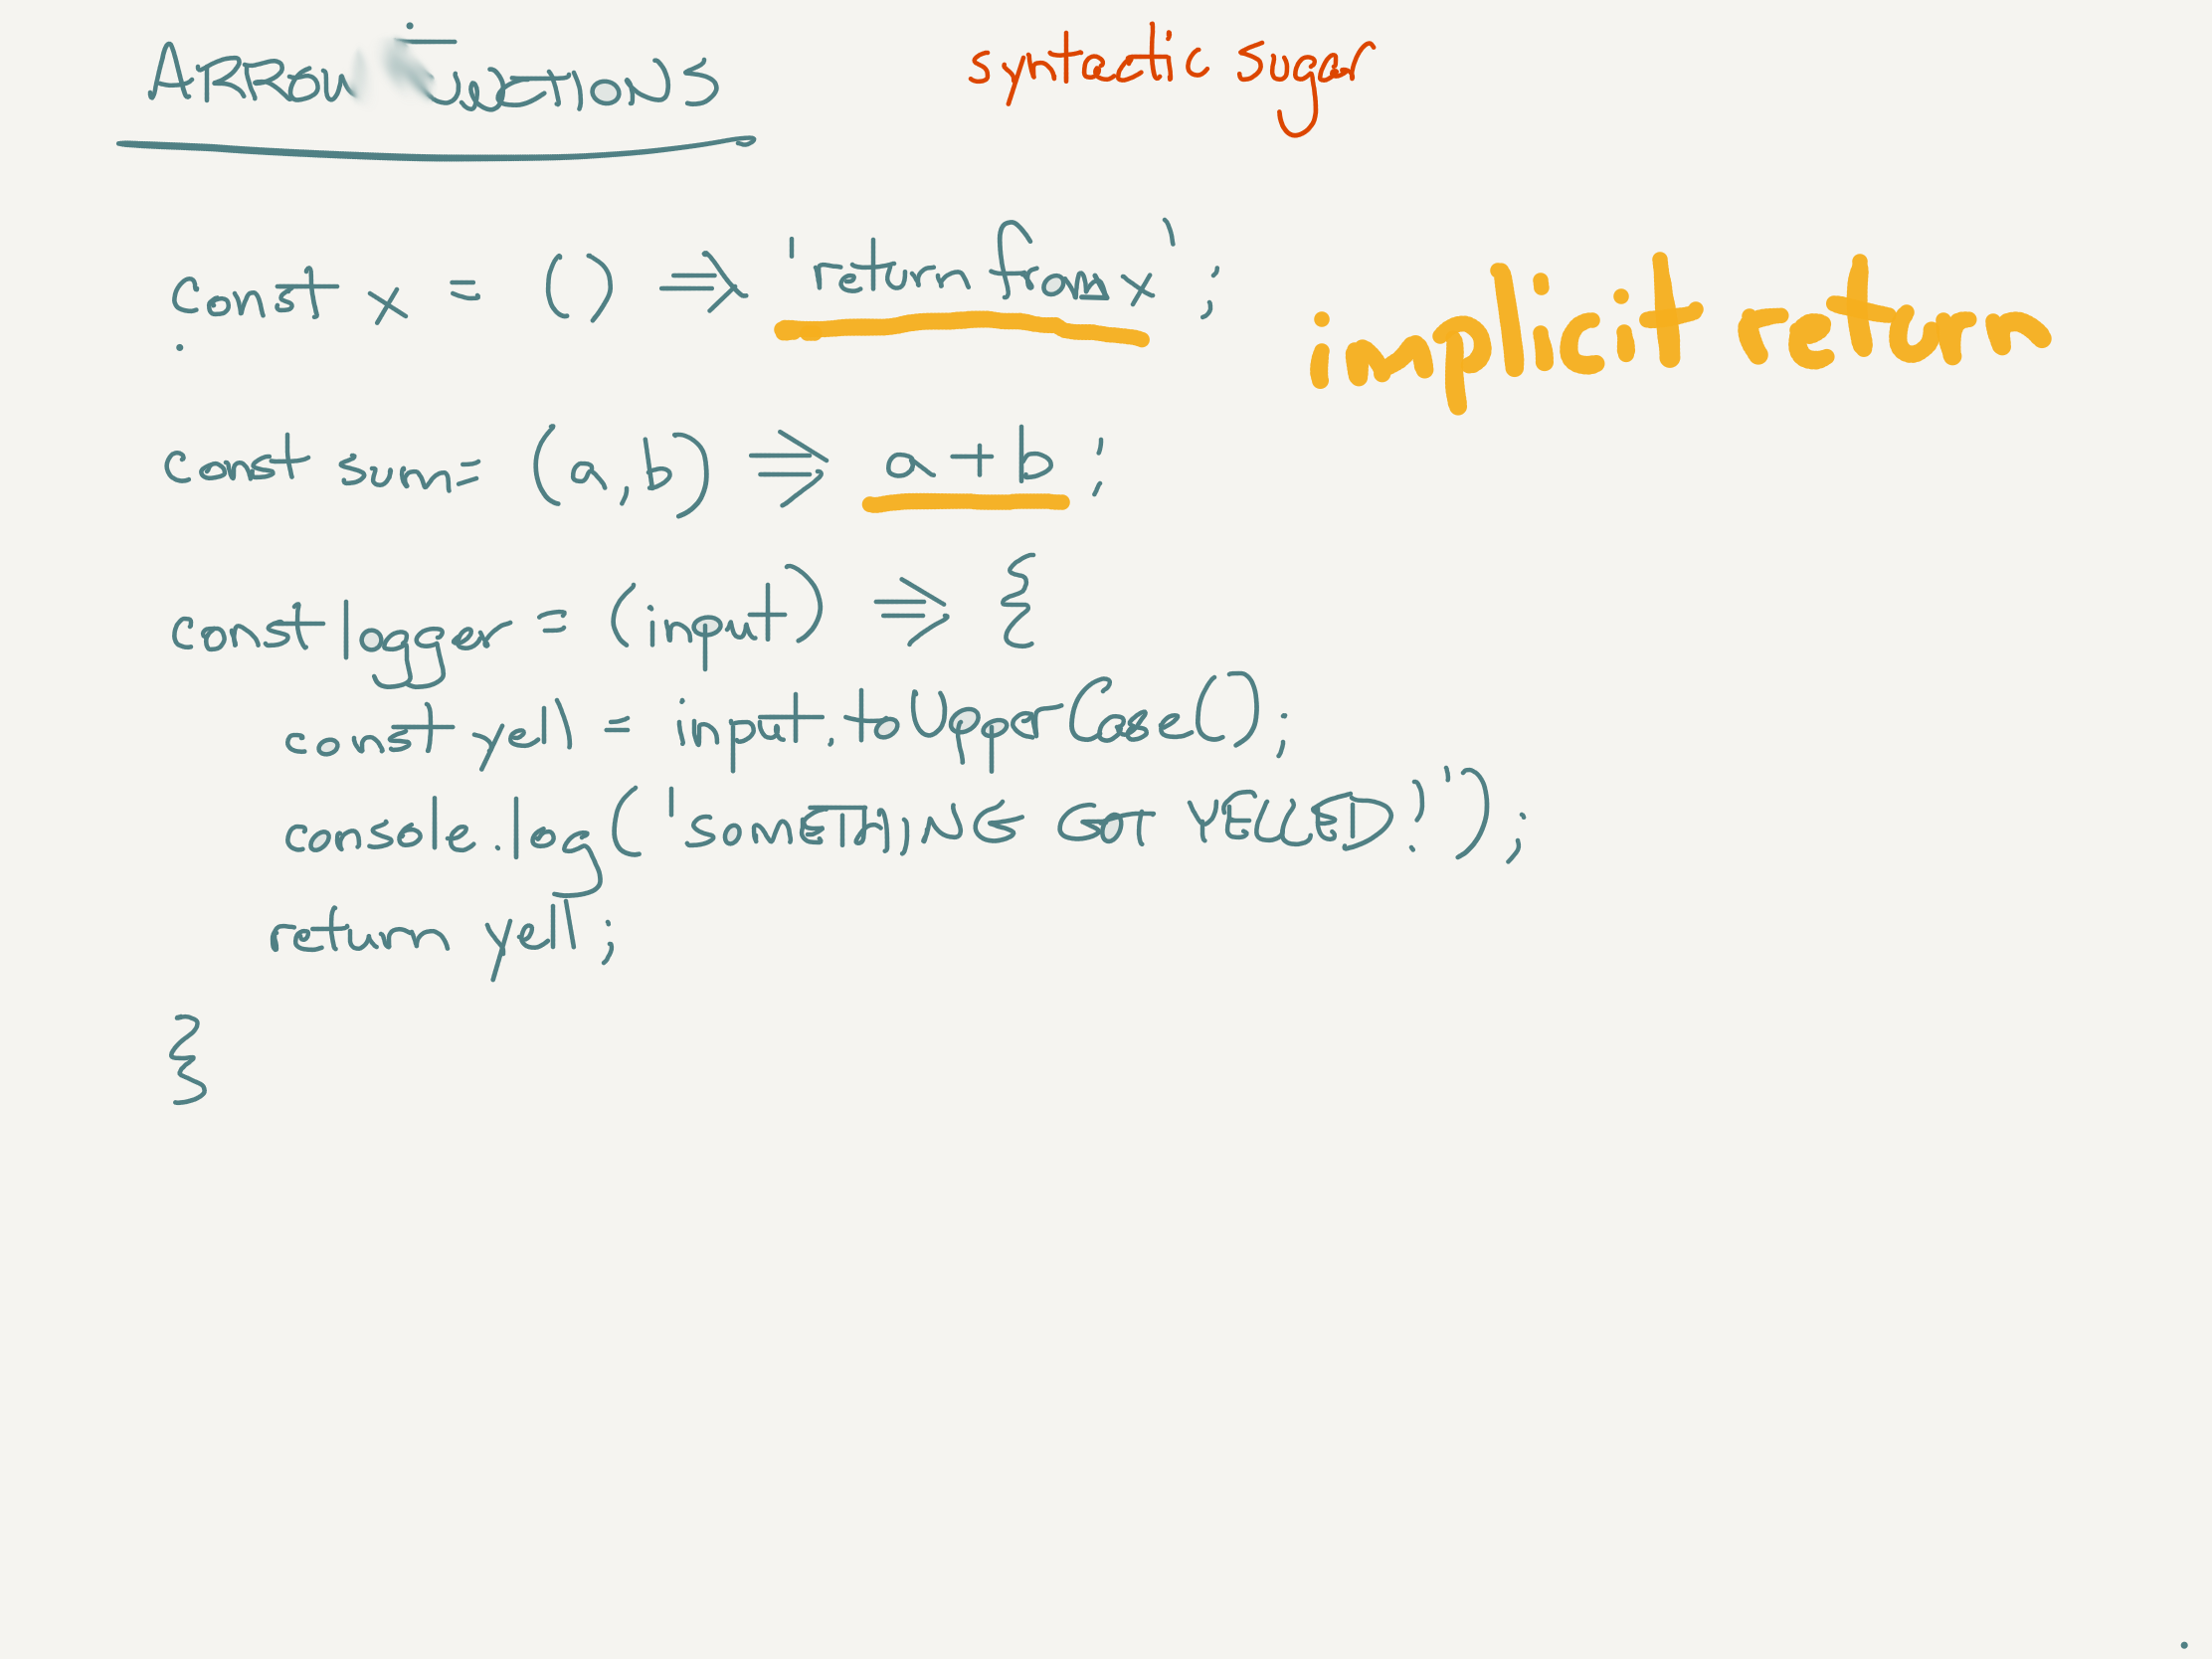 ARROW FUNCTIONS
syntactic sugar
const x = () => 'return from x';
implicit return
const sum = (a, b) => a + b;
const logger = (input) => {
const yell = input.toUpperCase();
console.log('SOMETHING GOT YELLED!');
return yell;
}